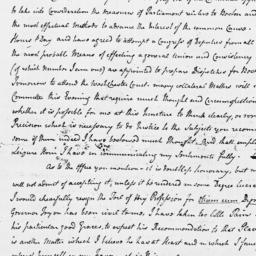 to take into Consideration the measures of Parliament relative to Boston and
the most effectual Methods to advance the Interest of the common Cause.
Hours a Day and have agreed to attempt a Congress of Deputies from all
the most probable Means of effecting a general Union and Consistency
(of which number I am one) was appointed to prepare Dispatches for Bost
Tomorrow to attend the Westchester Court. Many collateral Matters will
Committee this Evening that require much thought and Circumspection
whether it is possible for me at this Juncture to think clearly, or
Precision which is necessary to do Justice to the Subjects you recom
Some of them indeed I have bestowed much Thought. And shall employ
leisure Hours I have in communicating my Sentiments fully.
As to the office you mention it is doubtless honorary, but
will not admit of accepting it, unless it be rendered in some Degree lucra
I would chearfully resign the Toil of my Profession for
Governor Tryon has been civil to me. I have taken too little Pains
his particular good Graces, to expect his Recommendation to that Place
is another Matter which I believe he has at Heart and in which I